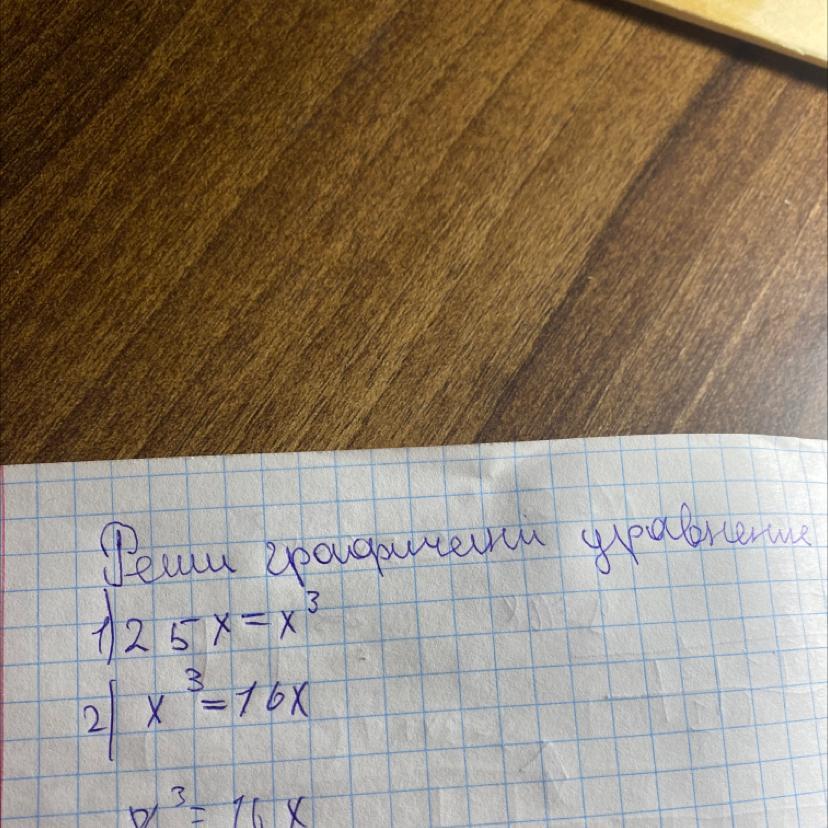 Реши графически уравнение
1) 25x=x³
2) x³=16x
x³=16x